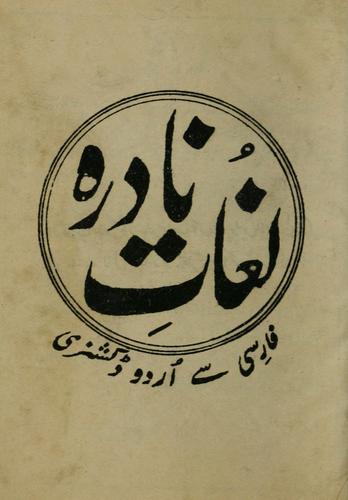 لُغاتِ نادرہ
فارسی سے اُردو ڈکشنری